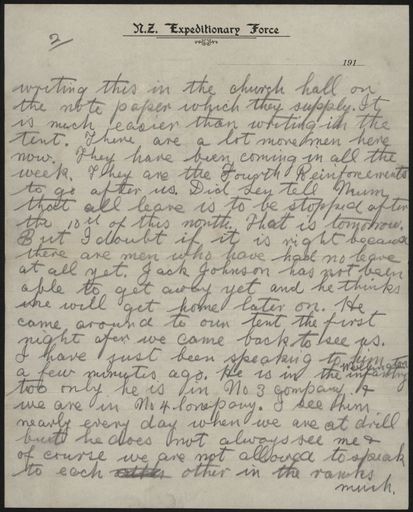 2
N.Z. Expeditionary Force
191
writing this in the church hall on
the note paper which they supply. It
is much easier than writing in the
tent. There are a lot more men here
now. They have been coming in all the
week. They are the Fourth Reinforcements
to go after us. Did Len tell Mum
that all leave is to be stopped after
the 10th of this month. That is tomorrow.
But I doubt if it is right because
there are men who have had no leave
at all yet. Jack Johnson has not been
able to get away yet and he thinks
we will get home later on. He
came around to our tent the first
night after we came back to see us.
I have just been speaking to him
a few minutes ago. He is in the Wellington infantry
too only he is in No 3 Company. &
we are in No 4 Company. I see him
nearly every day when we are at drill
but he does not always see me &
of course we are not allowed to speak
to each other in the ranks
much.